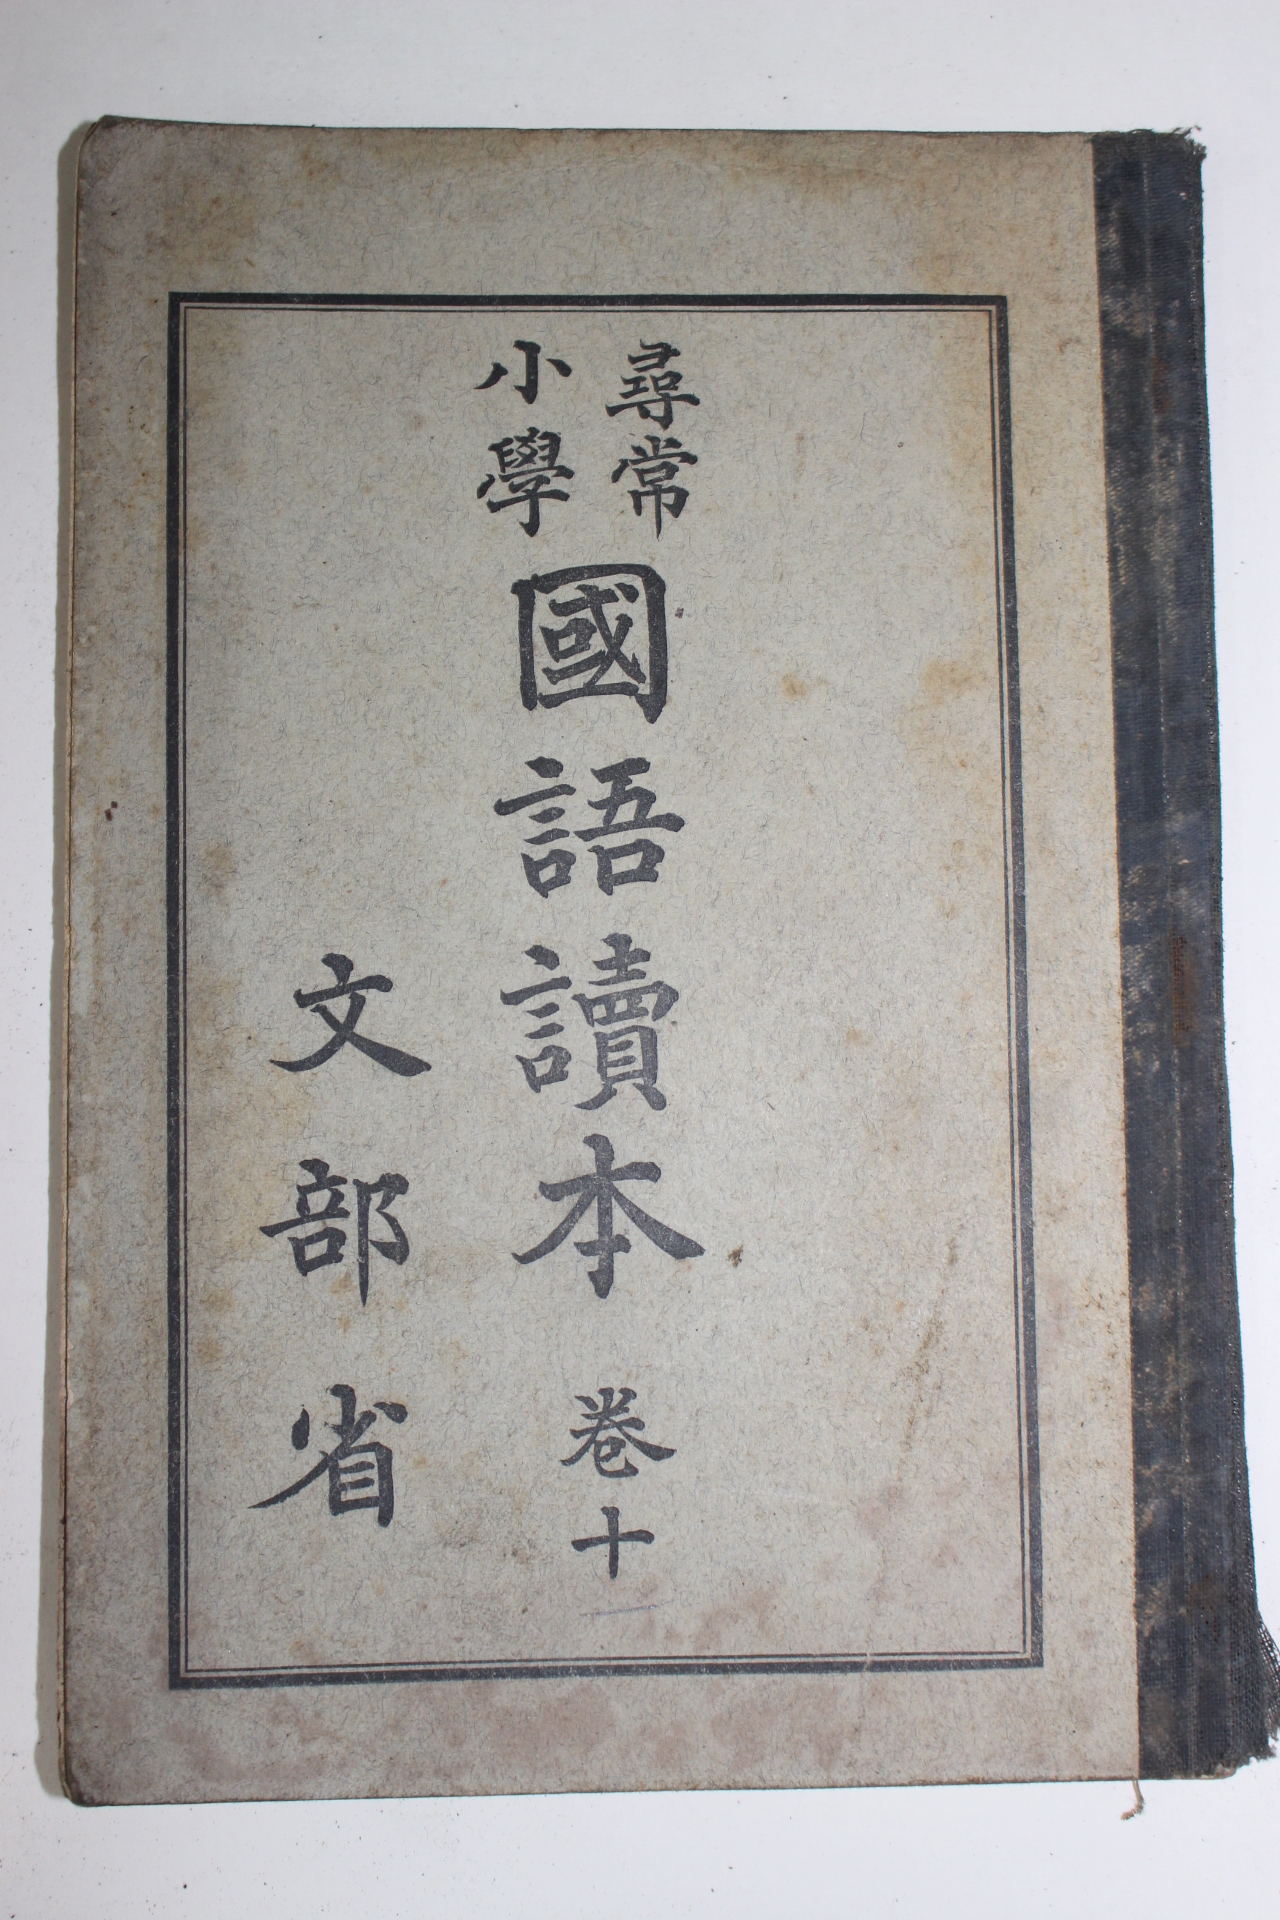 尋常
小學
國語讀本 卷十
文部省